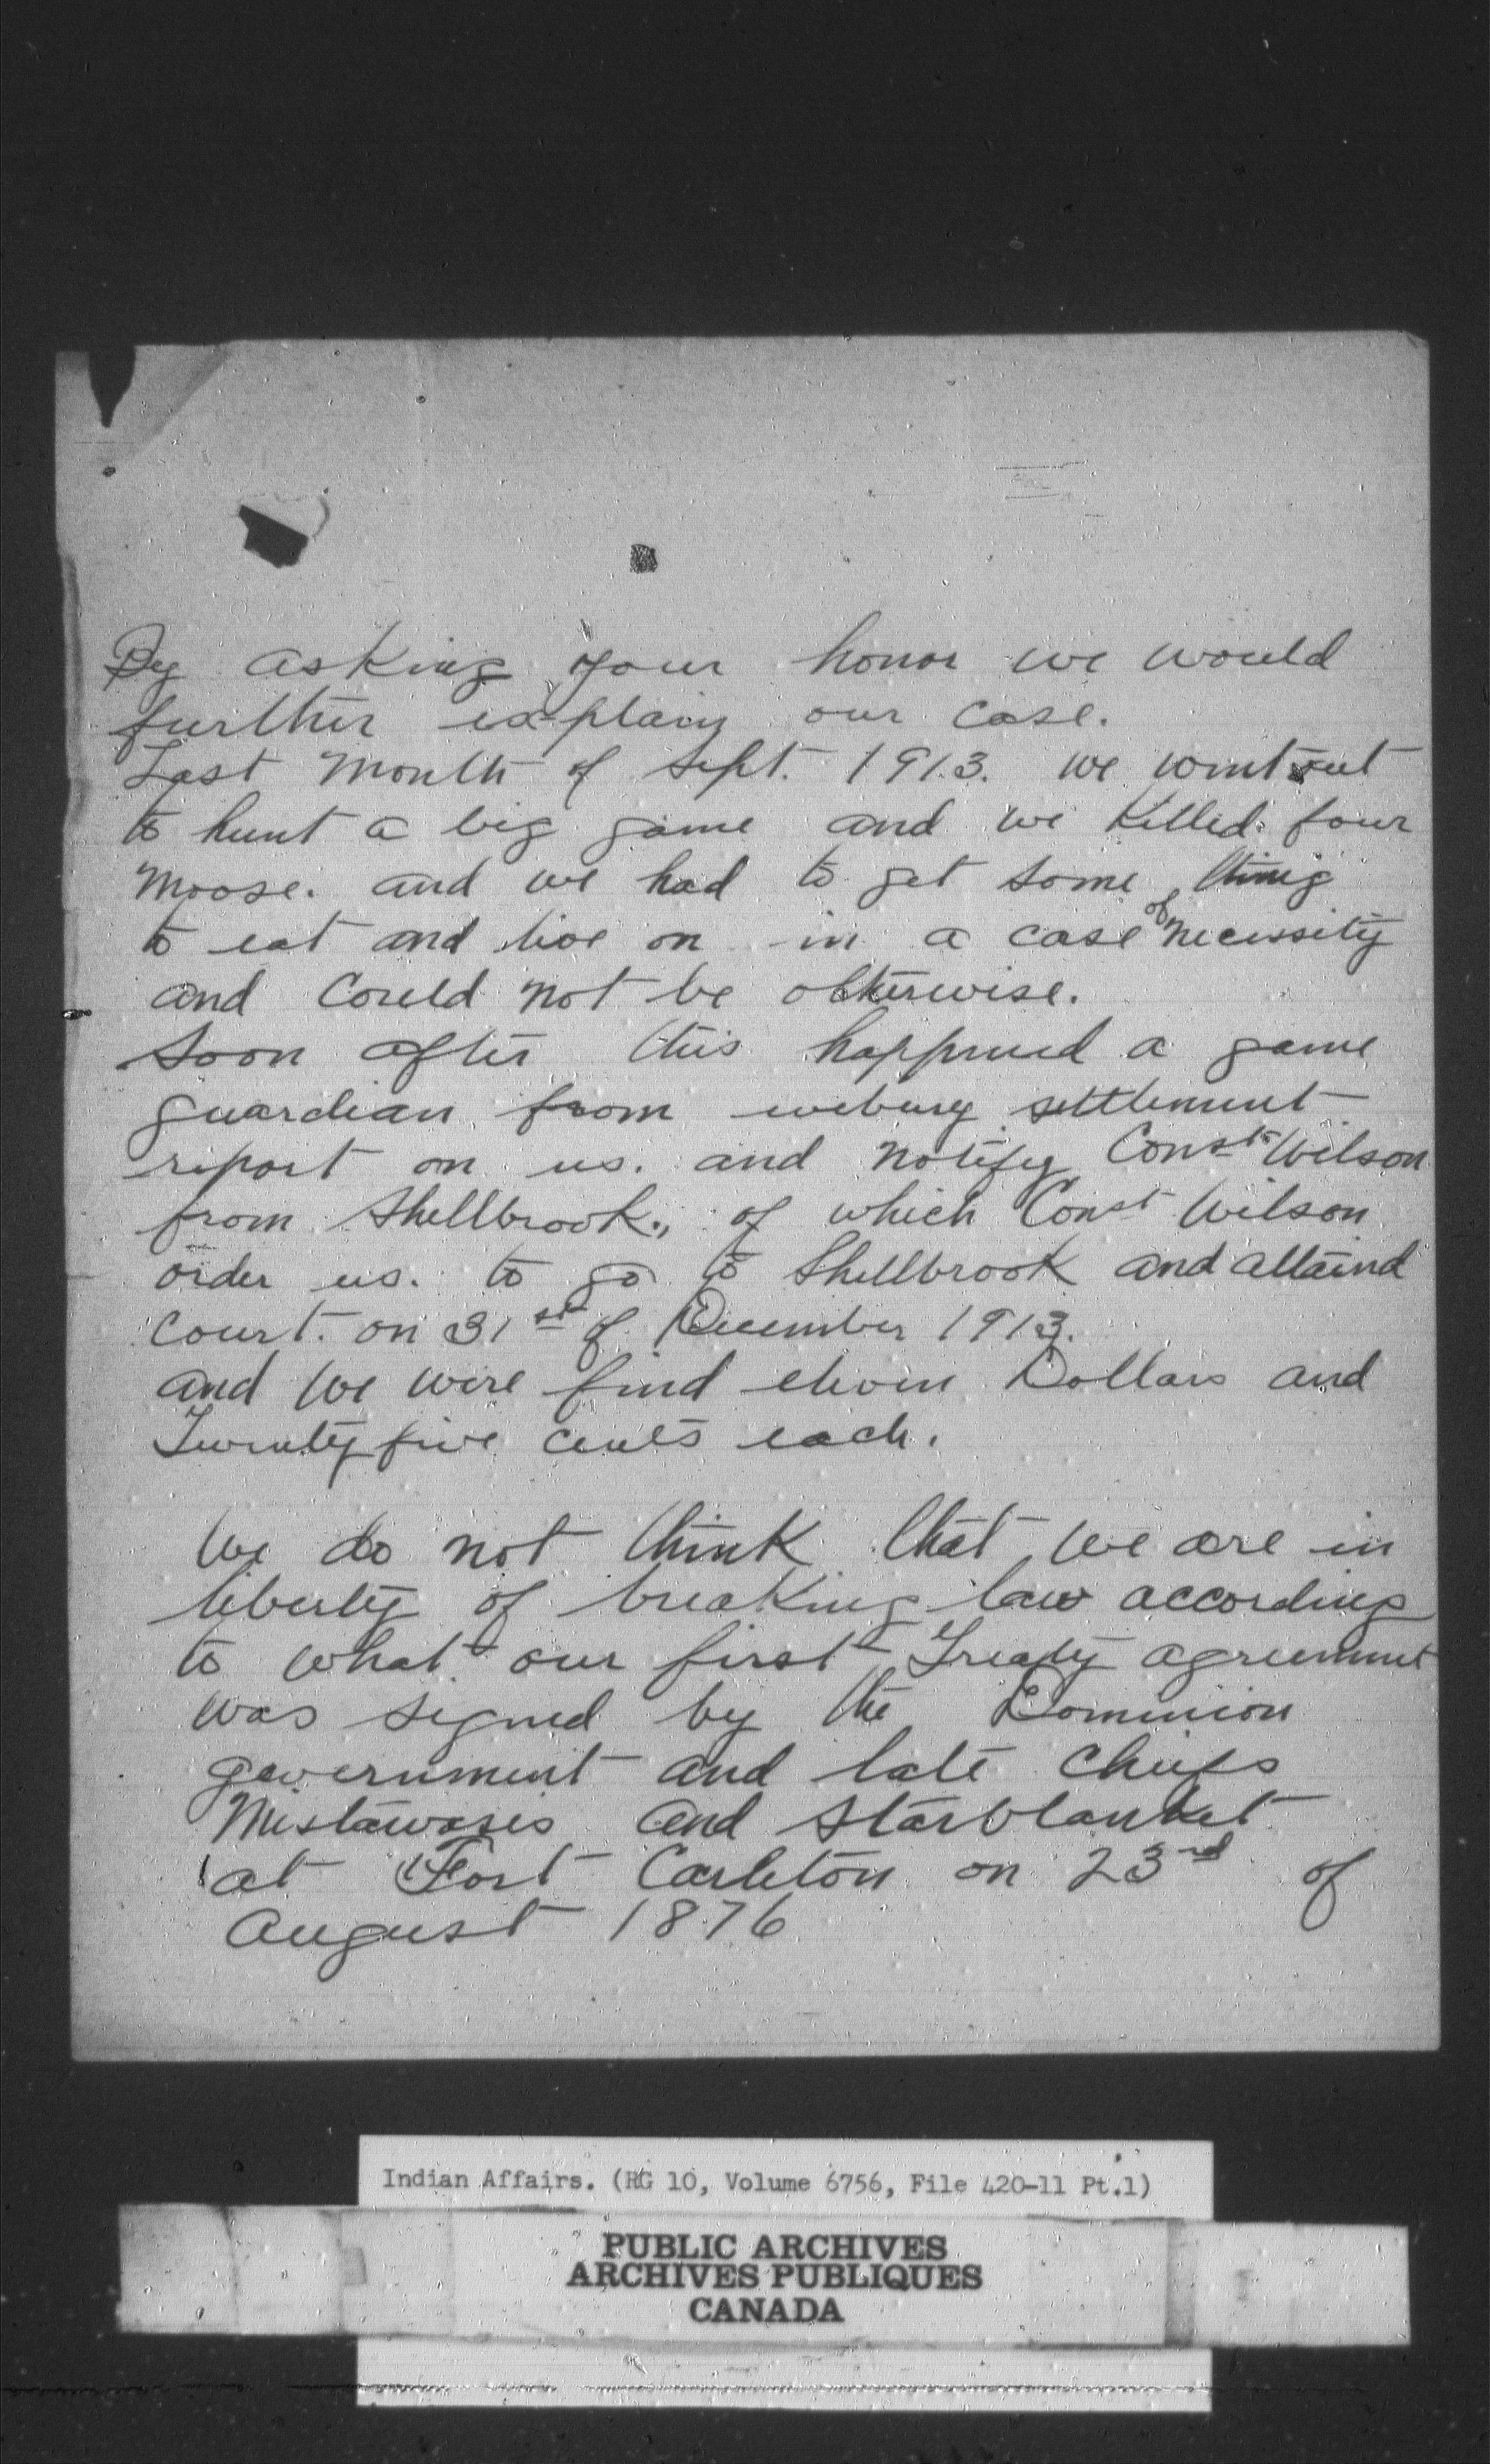 By asking your honor we would
further explain our case.
Last Month of Sept. 1913. we went out
to hunt a big game and we killed four
Moose. and we had to get some thing
to eat and live on in a case of necessity
and could not be otherwise.
Soon after this happened a game
guardian from settlement
report on us. and notify Const. Wilson
from Shellbrook, of which Const Wilson
order us. to go to Shellbrook and attaind
court. on 31st of December 1913.
and we were find eleven Dollars and
Twenty five cents each.
We do not think that we are in
liberty of breaking law according
to what our first Treaty agreement
was signed by the Dominion
government and late Chiefs
Mistawasis and Starblanket
at Fort Carleton on 23rd of
August 1876
Indian Affairs. (RG 10, Volume 6756, File 420-11 Pt.1)
PUBLIC ARCHIVES
ARCHIVES PUBLIQUES
CANADA